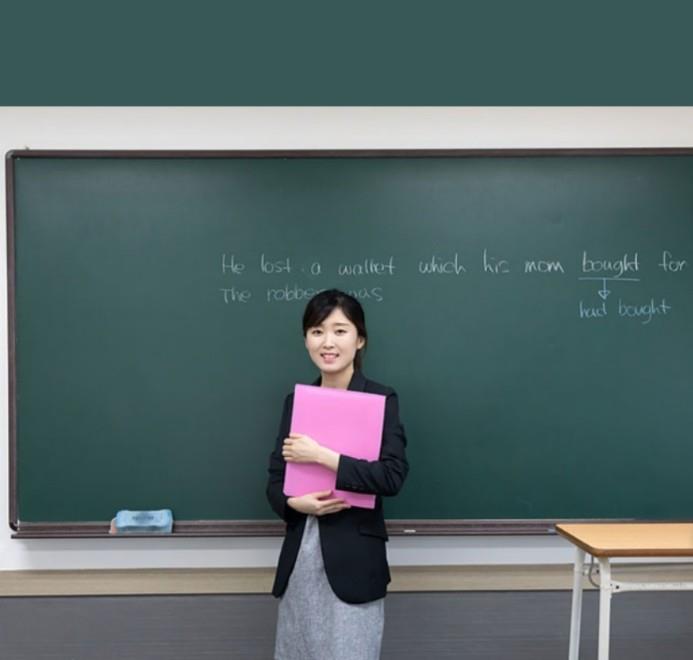 He lost a wallet which his mom bought for
The robber was
had bought